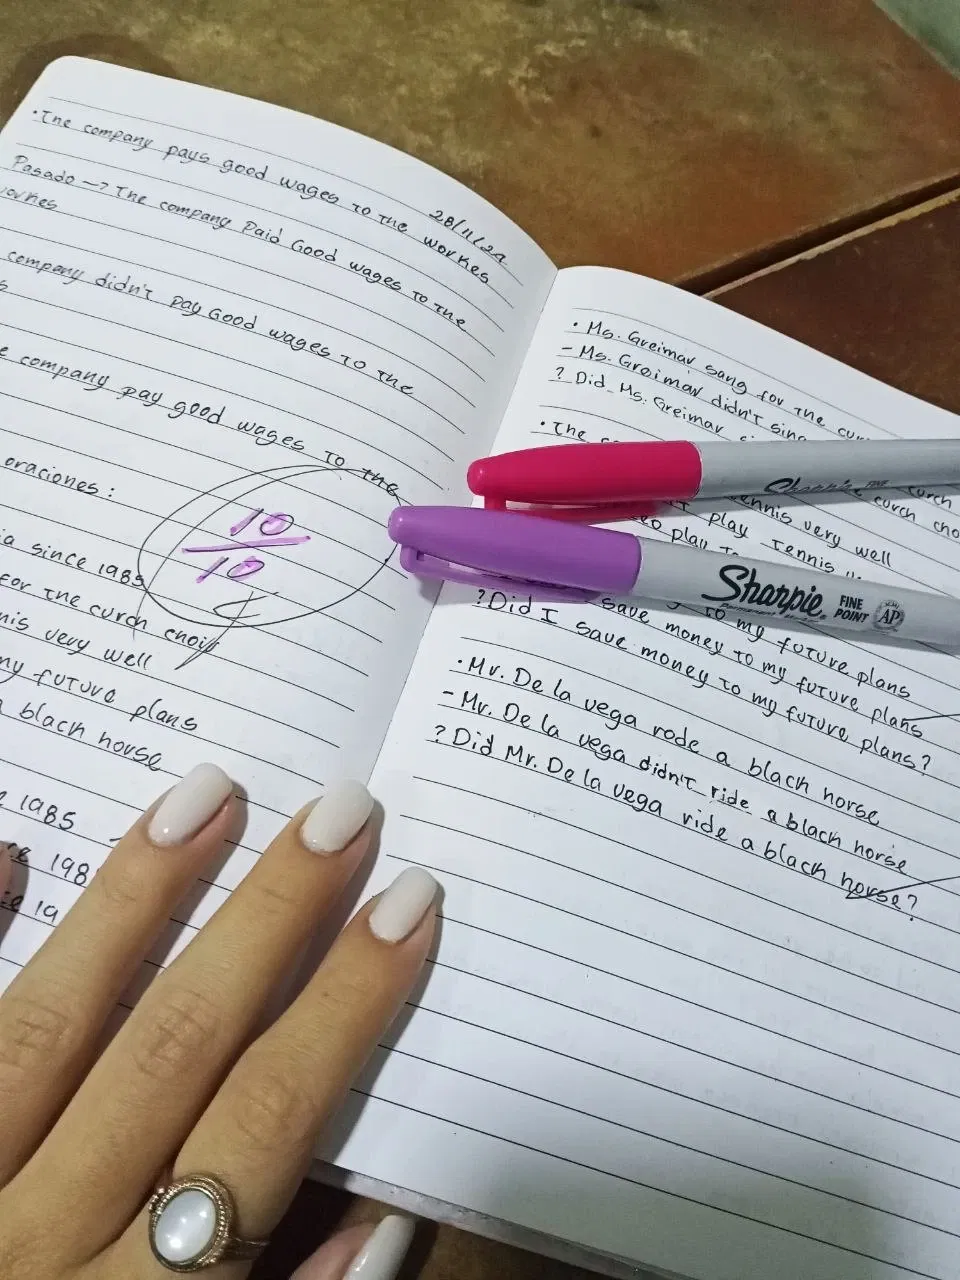 28/11/24
•The company pays good wages to the workes
Pasado → The company Paid Good wages to the
workes
company didn't pay Good wages to the
s
e company pay good wages to the
oraciones:
10
10
ia since 1985
for the curch choir
nis very well
my future plans
a black horse
e 1985
ce 198
ce 19
• Ms. Greimar sang for the curch
- Ms. Greimar didn't sing curch
? Did Ms. Greimar curch cho
•The
tennis very well
t play tennis
play
save to my future plans
save money to my future plans
?Did I save money to my future plans?
•Mr. De la vega rode a black horse
- Mr. De la vega didn't ride a black horse
? Did Mr. De la vega ride a black horse?
Sharpie FINE
Sharpie FINE POINT AP